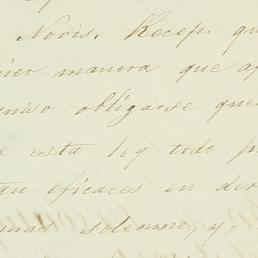 Novis. Recop. qu
ier manera que a
unso obligarse que
esta ley todo p
an eficaces en der
mas solemne, y,